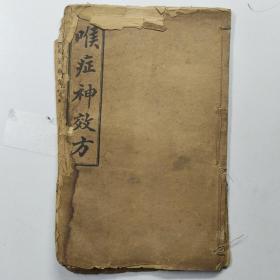 喉症神效方